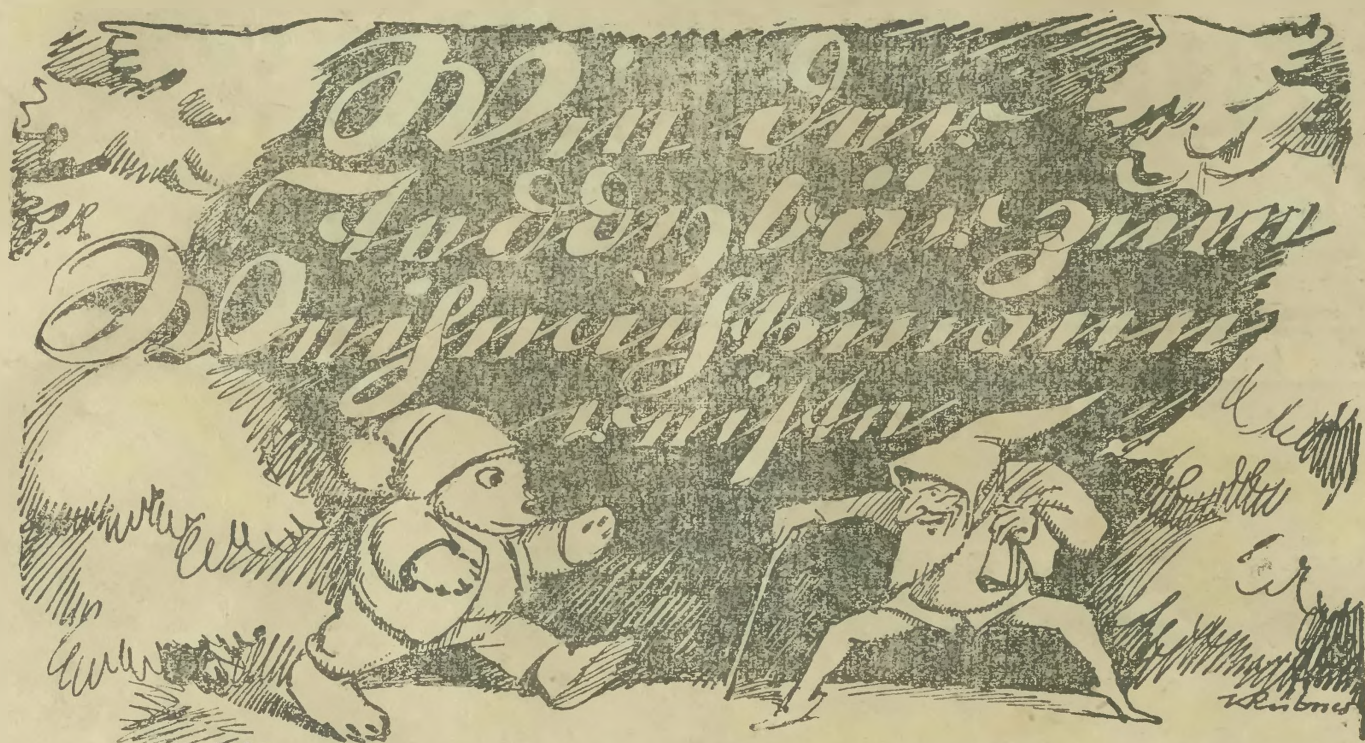 Wie der
Teddybär zum
Weihnachtsmann
reiste